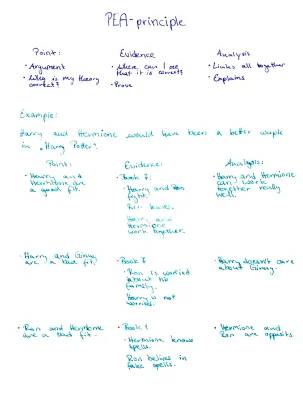 PEA-principle
Point:
• Argument
• Why is my theory
correct?
Evidence
• Where can I see
that it is correct?
• Prove
Analysis
• Links all together
• Explains
Example:
Harry and Hermione would have been a better couple
in „Harry Potter".
Point:
• Harry and
Hermione are
a good fit.
Evidence:
• Book 7:
• Harry and Ron
fight.
Ron leaves.
Harry and
Hermione
work together.
Analysis:
• Harry and Hermione
can work
together really
well.
• Harry and Ginny
are a bad fit.
• Book
• Ron is worried
about his
family.
Harry is not
worried.
• Harry doesn't care
about Ginny.
• Ron and Hermione
are a bad fit.
• Book 1
• Hermione knows
spells.
Ron believes in
fake spells.
• Hermione and
Ron are opposites.